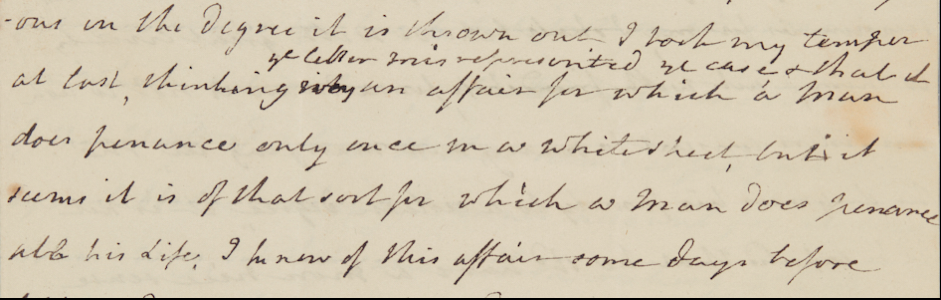 -ous in the degree it is thrown out I took my temper
ye letter misrepresented ye case & that it
at last, thinking an affair for which a man
does penance only once in a white sheet, but it
seems it is of that sort for which a man does penance
all his Life. I knew of this affair some days before